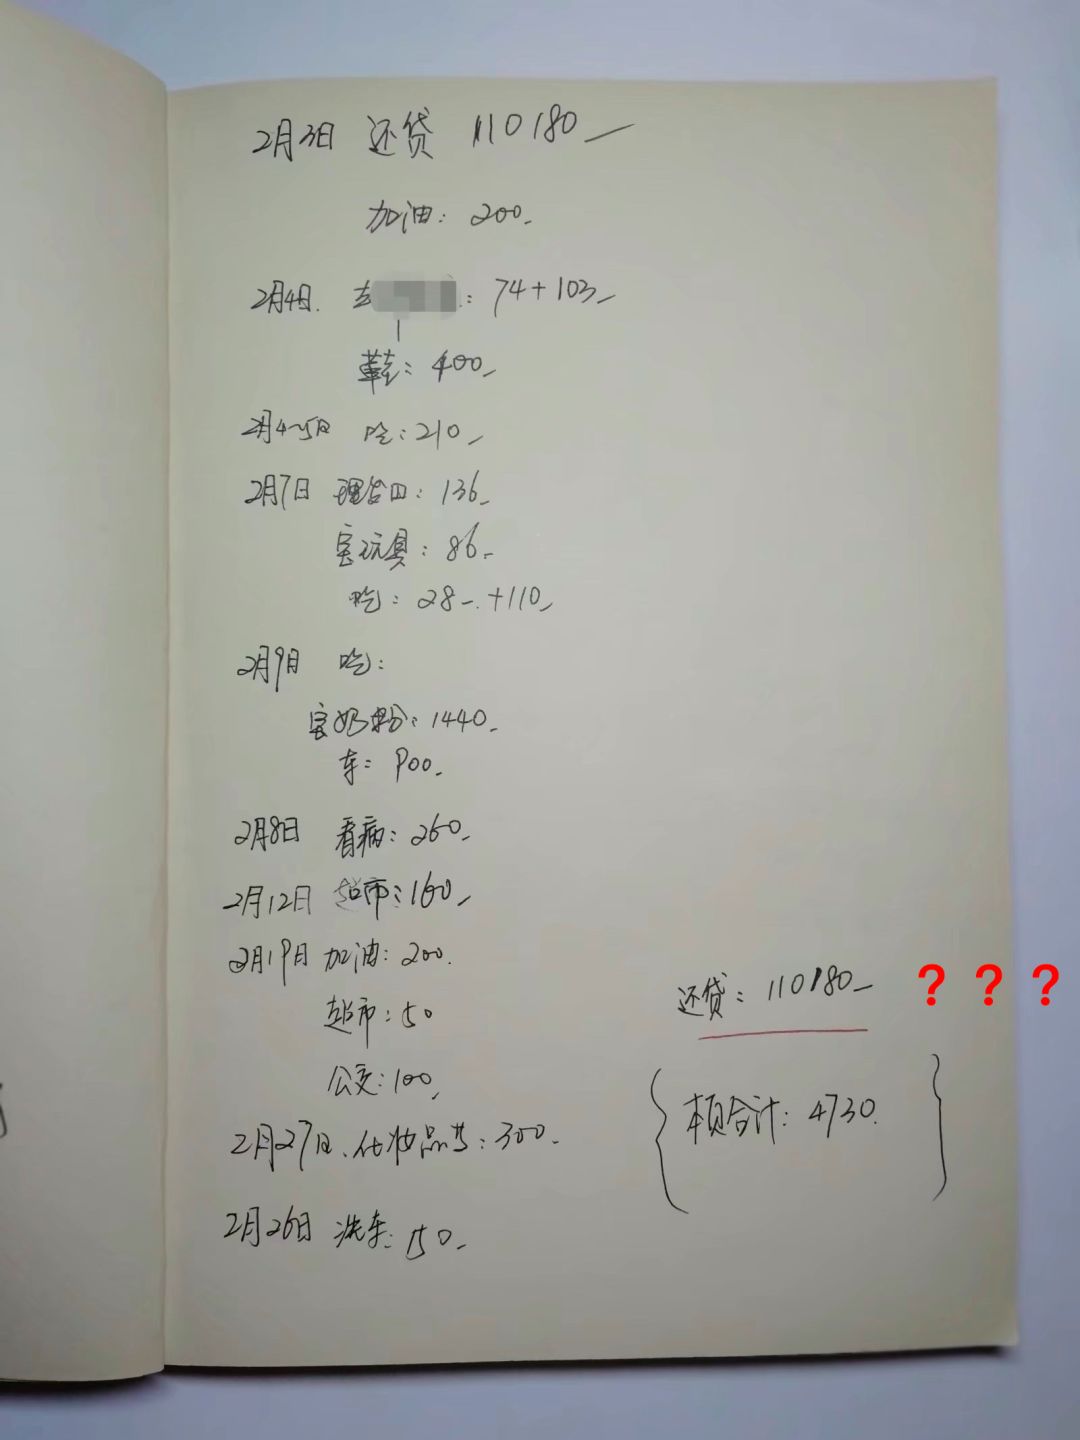 2月3日 还贷 110180
加油：200
2月4日. 去：74+103
鞋：400
2月4~5日 吃：210
2月7日 理合田：136
宝玩具：86
吃：28 +110
2月9日 吃：
宝奶粉：1440
车：900
2月8日 看病：260
2月12日 超市：160
2月19日 加油：200.
超市：50
公交：100
2月27日、化妆品等：300.
2月26日 洗车：50
还贷：110180 ？？？
本页合计：4730.